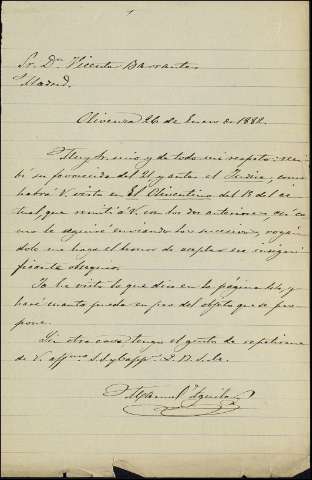 Sr. Dn. Vicente Barrantes
Madrid.
Olivenza 26 de Enero de 1882.
Muy Sr. mio y de todo mi respeto: reci-
bi su favorecida del 21 y antes el Juicio, como
habrá V. visto en El Oliventino del 15 del ac-
tual, que remití á V. con los dos anteriores, asi co-
mo le seguiré enviando los sucesivos, rogán-
dole me haga el honor de aceptar ese insigni-
ficante obsequio.
Ya he visto lo que dice en la página, y
haré cuanto pueda en pro del objeto que se pro-
pone.
Sin otra cosa tengo el gusto de repetirme
de V. affmo. S. S. y Q. B. S. M.
Manuel